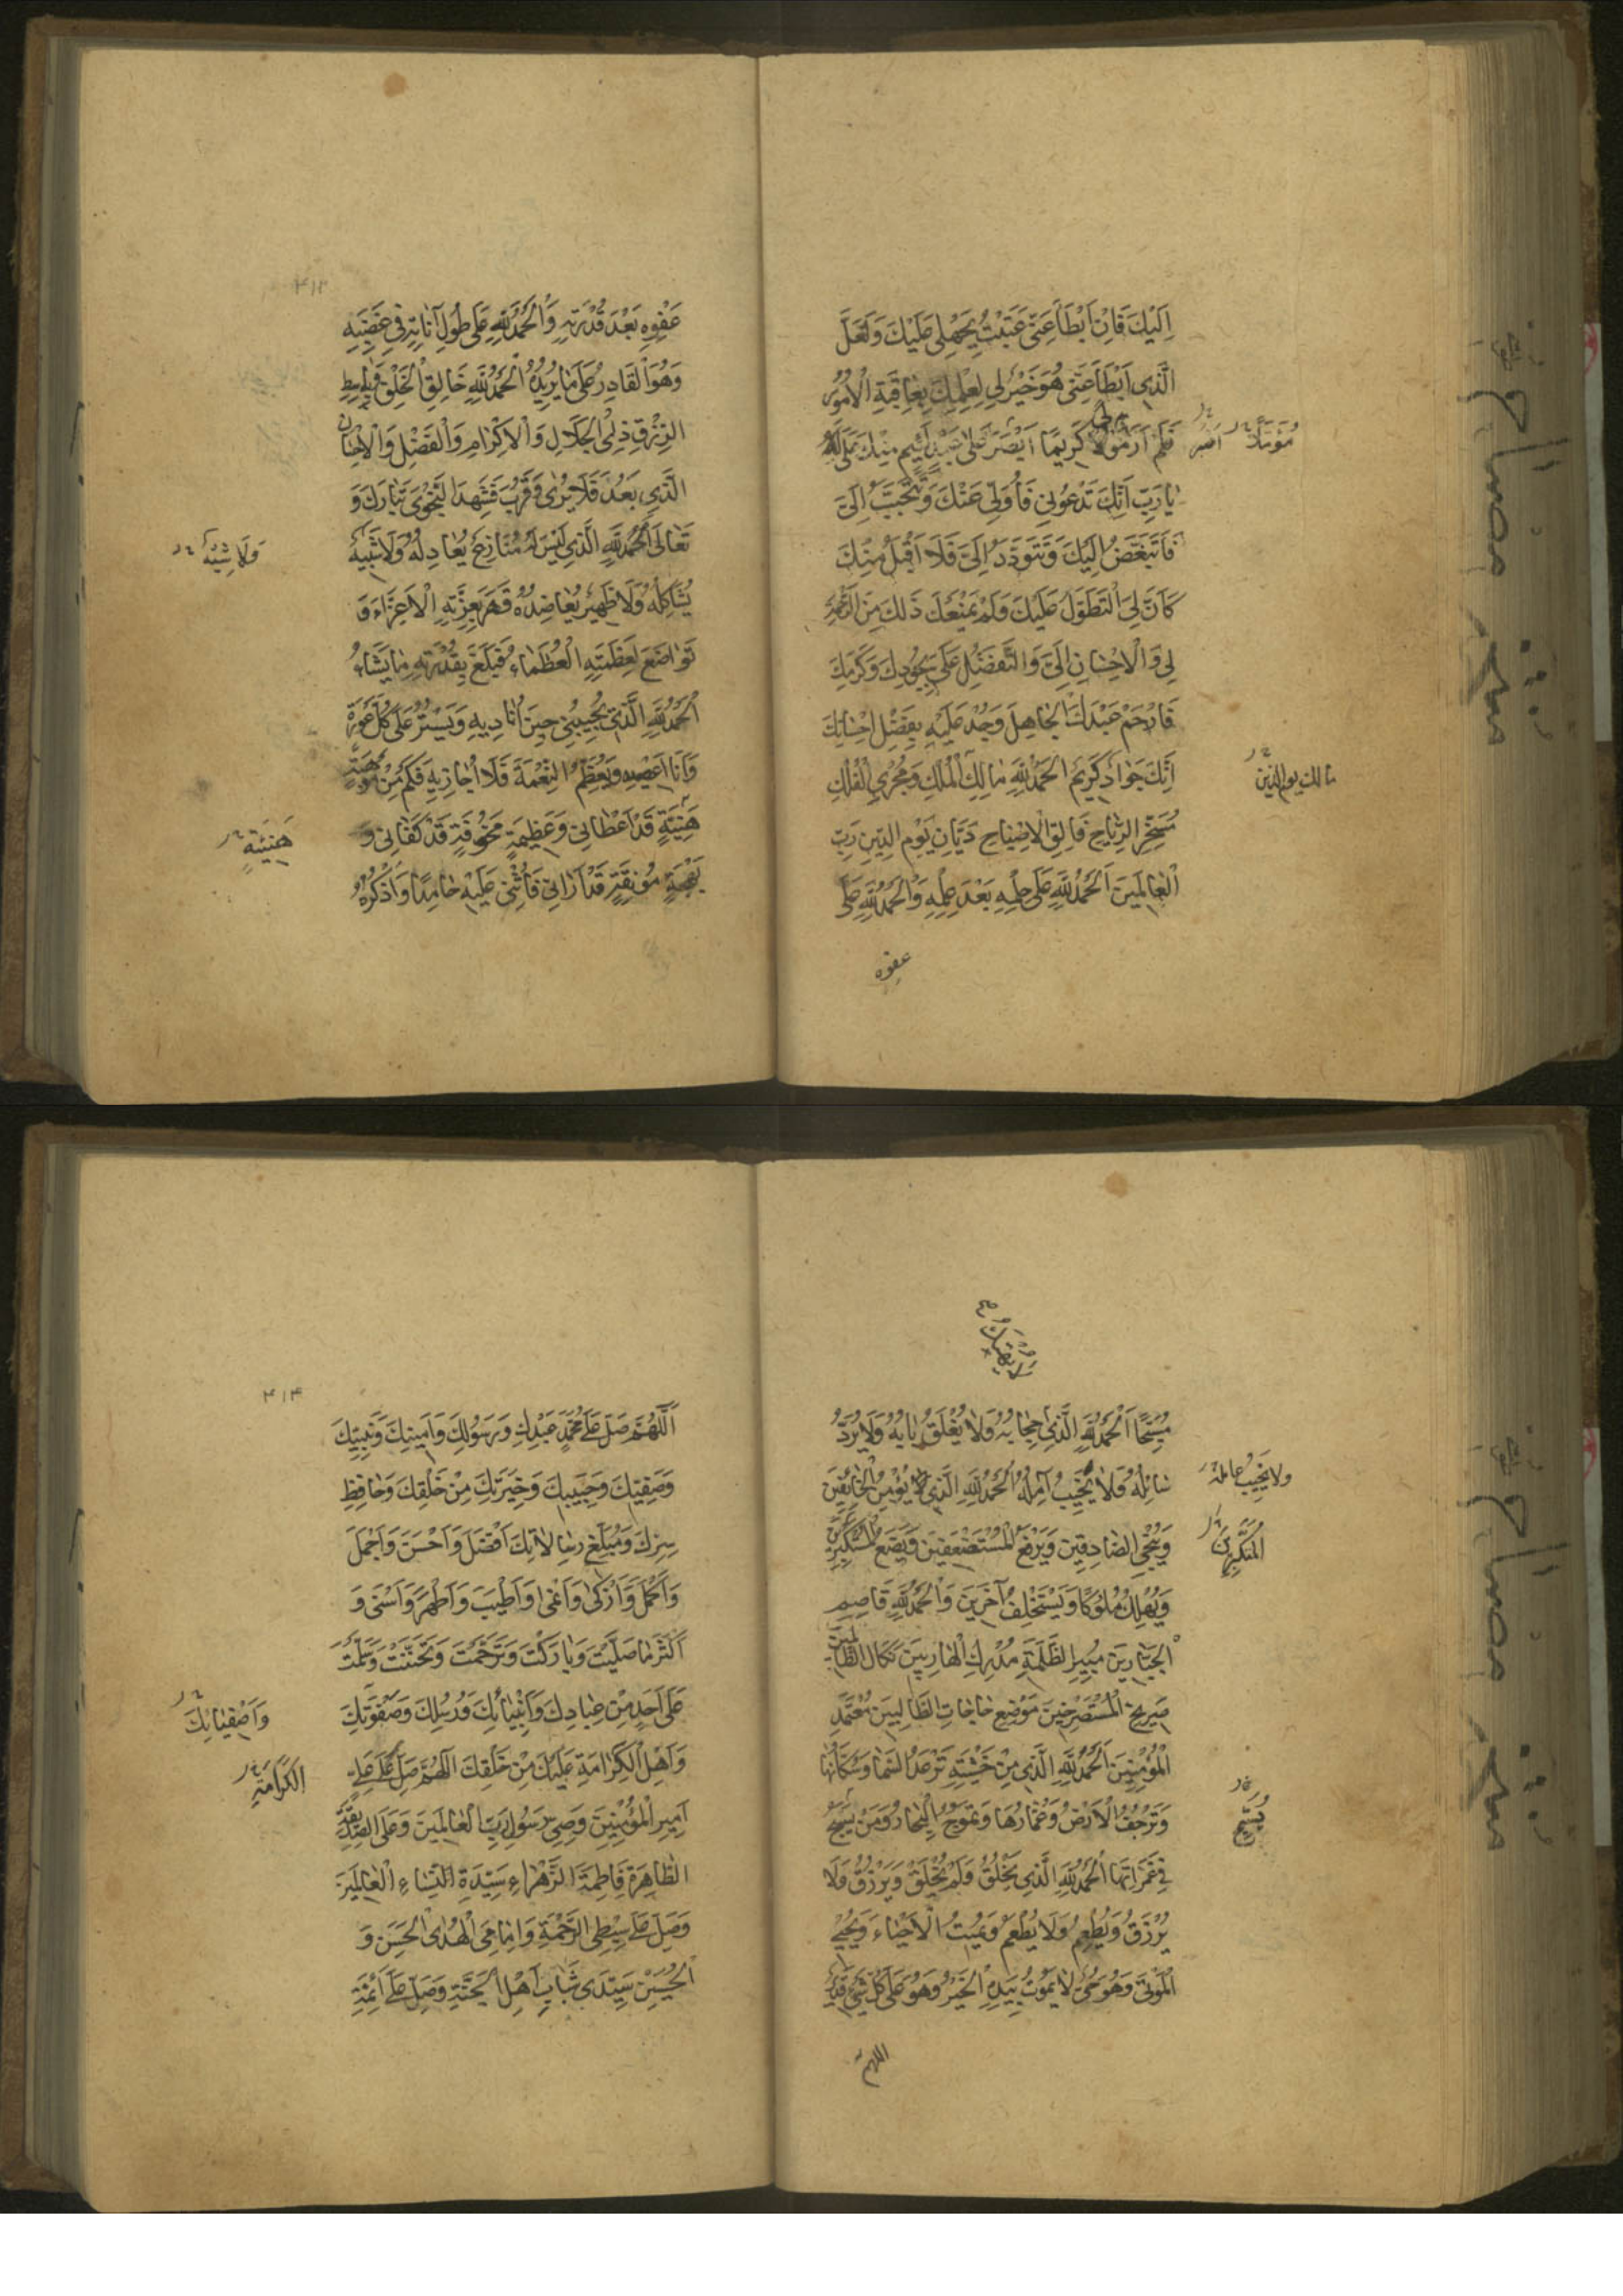 اِلَيْكَ فَاِنْ اَبْطَأَ عَنّي عَتَبْتُ بِجَهْلي عَلَيْكَ وَلَعَلَّ
الَّذي اَبْطَأَ عَنّي هُوَ خَيْرٌ لي لِعِلْمِكَ بِعاقِبَةِ الْاُمُورِ
فَلَمْ اَرَ مَوْلًا كَريمًا اَصْبَرَ عَلى عَبْدٍ لَئيمٍ مِنْكَ عَلَيَّ
مُؤَمَّلًا
يا رَبِّ اِنَّكَ تَدْعُوني فَاُوَلّي عَنْكَ وَتَتَحَبَّبُ اِلَيَّ
فَاَتَبَغَّضُ اِلَيْكَ وَتَتَوَدَّدُ اِلَيَّ فَلا اَقْبَلُ مِنْكَ
كَاَنَّ لِيَ التَّطَوُّلَ عَلَيْكَ وَلَمْ يَمْنَعْكَ ذلِكَ مِنَ الرَّحْمَةِ
لي وَالْاِحْسانِ اِلَيَّ وَالتَّفَضُّلِ عَلَيَّ بِجُودِكَ وَكَرَمِكَ
فَارْحَمْ عَبْدَكَ الْجاهِلَ وَجُدْ عَلَيْهِ بِفَضْلِ اِحْسانِكَ
اِنَّكَ جَوادٌ كَريمٌ اَلْحَمْدُ لِلّهِ مالِكِ الْمُلْكِ وَمُجْرِي الْفُلْكِ
مالك يوم الدين
مُسَخِّرِ الرِّياحِ فالِقِ الْاِصْباحِ دَيّانِ يَوْمِ الدّينِ رَبِّ
الْعالَمينَ اَلْحَمْدُ لِلّهِ عَلى حِلْمِهِ بَعْدَ عِلْمِهِ وَالْحَمْدُ لِلّهِ عَلى
عفوه
۴۱۳
عَفْوِهِ بَعْدَ قُدْرَتِهِ وَالْحَمْدُ لِلّهِ عَلى طُولِ اَناتِهِ في غَضَبِهِ
وَهُوَ الْقادِرُ عَلى ما يُريدُ اَلْحَمْدُ لِلّهِ خالِقِ الْخَلْقِ وَباسِطِ
الرِّزْقِ ذِي الْجَلالِ وَالْاِكْرامِ وَالْفَضْلِ وَالْاِحْسانِ
الَّذي بَعُدَ فَلا يُرى وَقَرُبَ فَشَهِدَ النَّجْوى تَبارَكَ وَ
تَعالى اَلْحَمْدُ لِلّهِ الَّذي لَيْسَ لَهُ مُنازِعٌ يُعادِلُهُ وَلا شَبيهٌ
وَلا شِبْهٌ
يُشاكِلُهُ وَلا ظَهيرٌ يُعاضِدُهُ قَهَرَ بِعِزَّتِهِ الْاَعِزّاءَ وَ
تَواضَعَ لِعَظَمَتِهِ الْعُظَماءُ فَبَلَغَ بِقُدْرَتِهِ ما يَشاءُ
اَلْحَمْدُ لِلّهِ الَّذي يُجيبُني حينَ اُناديهِ وَيَسْتُرُ عَلَيَّ كُلَّ عَوْرَةٍ
وَاَنَا اَعْصيهِ وَيُعَظِّمُ النِّعْمَةَ فَلا اُجازيهِ فَكَمْ مِنْ مَوْهِبَةٍ
هَنيئَةٍ قَدْ اَعْطاني وَعَظيمَةٍ مَخُوفَةٍ قَدْ كَفاني وَ
هَنيئَةٍ
بَهْجَةٍ مُونِقَةٍ قَدْ اَراني فَاُثْني عَلَيْهِ حامِدًا وَاَذْكُرُهُ
مُسَبِّحًا اَلْحَمْدُ لِلّهِ الَّذي حِجابُهُ وَلا يُغْلَقُ بابُهُ وَلا يُرَدُّ
سائِلُهُ وَلا يُخَيَّبُ آمِلُهُ اَلْحَمْدُ لِلّهِ الَّذي يُؤْمِنُ الْخائِفينَ
وَيُنَجِّي الصّادِقينَ وَيَرْفَعُ الْمُسْتَضْعَفينَ وَيَضَعُ الْمُسْتَكْبِرينَ
الْمُتَكَبِّرينَ
وَيُهْلِكُ مُلُوكًا وَيَسْتَخْلِفُ آخَرينَ وَالْحَمْدُ لِلّهِ قاصِمِ
الْجَبّارينَ مُبيرِ الظَّلَمَةِ مُدْرِكِ الْهارِبينَ نَكالِ الظّالِمينَ
صَريخِ الْمُسْتَصْرِخينَ مَوْضِعِ حاجاتِ الطّالِبينَ مُعْتَمَدِ
الْمُؤْمِنينَ اَلْحَمْدُ لِلّهِ الَّذي مِنْ خَشْيَتِهِ تَرْعَدُ السَّماءُ وَسُكّانُها
وَتَرْجُفُ الْاَرْضُ وَعُمّارُها وَتَمُوجُ الْبِحارُ وَمَنْ يَسْبَحُ
يُسَبِّحُ
في غَمَراتِها اَلْحَمْدُ لِلّهِ الَّذي يَخْلُقُ وَلَمْ يُخْلَقْ وَيَرْزُقُ وَلا
يُرْزَقُ وَيُطْعِمُ وَلا يُطْعَمُ وَيُميتُ الْاَحْياءَ وَيُحْيي
الْمَوْتى وَهُوَ حَيٌّ لا يَمُوتُ بِيَدِهِ الْخَيْرُ وَهُوَ عَلى كُلِّ شَيْءٍ قَديرٌ
اللهم
۴۱۴
اَللّهُمَّ صَلِّ عَلى مُحَمَّدٍ عَبْدِكَ وَرَسُولِكَ وَاَمينِكَ وَنَبِيِّكَ
وَصَفِيِّكَ وَحَبيبِكَ وَخِيَرَتِكَ مِنْ خَلْقِكَ وَحافِظِ
سِرِّكَ وَمُبَلِّغِ رِسالاتِكَ اَفْضَلَ وَاَحْسَنَ وَاَجْمَلَ
وَاَكْمَلَ وَاَزْكى وَاَنْمى وَاَطْيَبَ وَاَطْهَرَ وَاَسْنى وَ
اَكْثَرَ ما صَلَّيْتَ وَبارَكْتَ وَتَرَحَّمْتَ وَتَحَنَّنْتَ وَسَلَّمْتَ
عَلى اَحَدٍ مِنْ عِبادِكَ وَاَنْبِيائِكَ وَرُسُلِكَ وَصَفْوَتِكَ
وَاَصْفِيائِكَ
وَاَهْلِ الْكَرامَةِ عَلَيْكَ مِنْ خَلْقِكَ اَللّهُمَّ صَلِّ عَلى عَلِيٍّ
الْكَرامَةِ
اَميرِ الْمُؤْمِنينَ وَوَصِيِّ رَسُولِ رَبِّ الْعالَمينَ وَعَلَى الصِّدّيقَةِ
الطّاهِرَةِ فاطِمَةَ الزَّهْراءِ سَيِّدَةِ النِّساءِ الْعالَمينَ
وَصَلِّ عَلى سِبْطَيِ الرَّحْمَةِ وَاِمامَيِ الْهُدى الْحَسَنِ وَ
الْحُسَيْنِ سَيِّدَي شَبابِ اَهْلِ الْجَنَّةِ وَصَلِّ عَلى اَئِمَّةِ